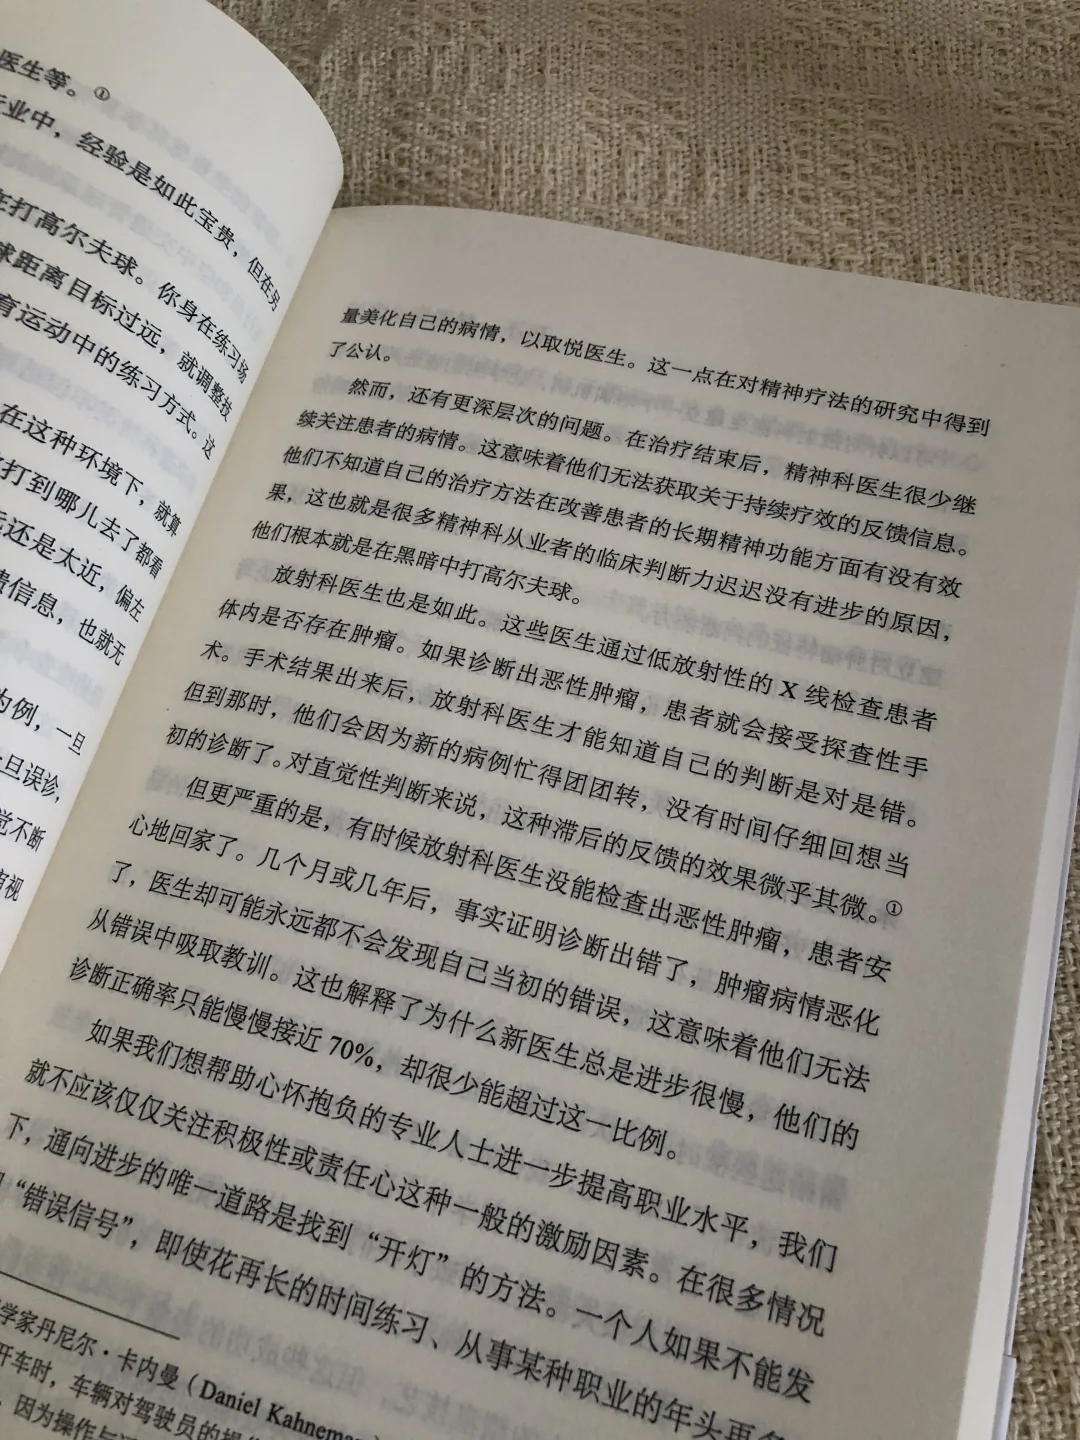 医生等。①
业中，经验是如此宝贵，但在另
在打高尔夫球。你身在练习场
球距离目标过远，就调整技
育运动中的练习方式。这
在这种环境下，就算
打到哪儿去了都看
还是太近，偏左
馈信息，也就无
为例，一旦
一旦误诊，
觉不断
有视
量美化自己的病情，以取悦医生。这一点在对精神疗法的研究中得到
了公认。
然而，还有更深层次的问题。在治疗结束后，精神科医生很少继
续关注患者的病情。这意味着他们无法获取关于持续疗效的反馈信息。
他们不知道自己的治疗方法在改善患者的长期精神功能方面有没有效
果，这也就是很多精神科从业者的临床判断力迟迟没有进步的原因，
他们根本就是在黑暗中打高尔夫球。
放射科医生也是如此。这些医生通过低放射性的 X 线检查患者
体内是否存在肿瘤。如果诊断出恶性肿瘤，患者就会接受探查性手
术。手术结果出来后，放射科医生才能知道自己的判断是对是错。
但到那时，他们会因为新的病例忙得团团转，没有时间仔细回想当
初的诊断了。对直觉性判断来说，这种滞后的反馈的效果微乎其微。①
但更严重的是，有时候放射科医生没能检查出恶性肿瘤，患者安
心地回家了。几个月或几年后，事实证明诊断出错了，肿瘤病情恶化
了，医生却可能永远都不会发现自己当初的错误，这意味着他们无法
从错误中吸取教训。这也解释了为什么新医生总是进步很慢，他们的
诊断正确率只能慢慢接近 70%，却很少能超过这一比例。
如果我们想帮助心怀抱负的专业人士进一步提高职业水平，我们
就不应该仅仅关注积极性或责任心这种一般的激励因素。在很多情况
下，通向进步的唯一道路是找到“开灯”的方法。一个人如果不能发
“错误信号”，即使花再长的时间练习、从事某种职业的年头再
学家丹尼尔·卡内曼（Daniel Kahneman
开车时，车辆对驾驶员的操
因为操作与